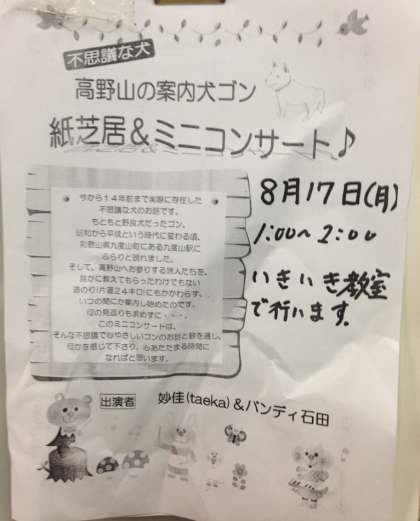 不思議な犬
高野山の案内犬ゴン
紙芝居&ミニコンサート♪
今から14年前まで実際に存在した
不思議な犬のお話です。
もともと野良犬だったゴン。
昭和から平成という時代に変わる頃、
和歌山県九度山町にある九度山駅に
ふらりと現れました。
そして、高野山へお参りする旅人たちを、
誰かに教えてもらったわけでもない
道のり(片道24キロ)にもかかわらず、
いつの間にか案内し始めたのです。
何の見返りも求めずに・・・。
このミニコンサートは、
そんな不思議で心やさしいゴンのお話と歌を通し、
何かを感じて下さり、心あたたまる時間に
なればと思います。
8月17日(月)
1:00〜2:00
いきいき教室
で行います。
出演者 妙佳(taeka)&バンディ石田